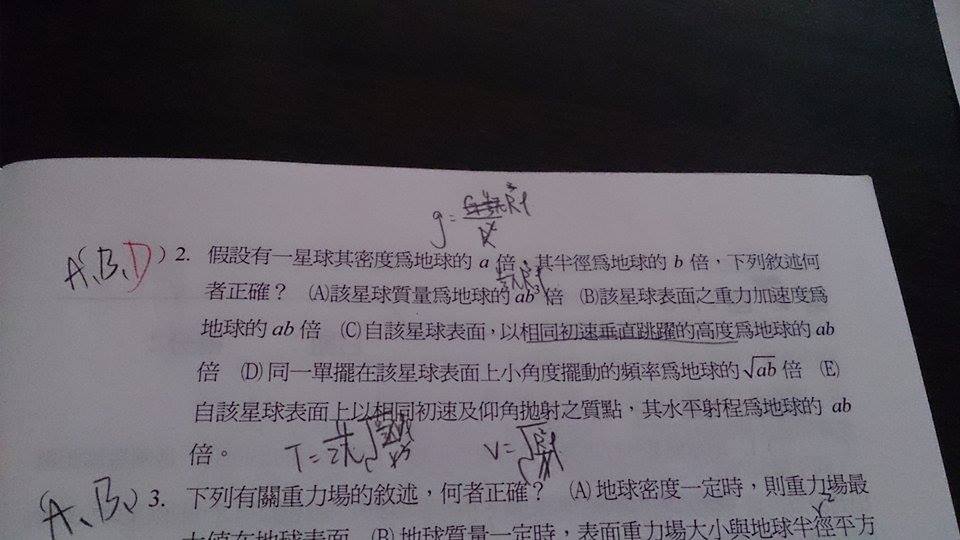 g =
A、B、D ) 2. 假設有一星球其密度為地球的 a 倍，其半徑為地球的 b 倍，下列敘述何
者正確？ (A)該星球質量為地球的 ab³ 倍 (B)該星球表面之重力加速度為
地球的 ab 倍 (C)自該星球表面，以相同初速垂直跳躍的高度為地球的 ab
倍 (D)同一單擺在該星球表面上小角度擺動的頻率為地球的 √ab 倍 (E)
自該星球表面上以相同初速及仰角拋射之質點，其水平射程為地球的 ab
倍。 T = V =
(A、B、) 3. 下列有關重力場的敘述，何者正確？ (A)地球密度一定時，則重力場最
大值在地球表面 (B)地球質量一定時，表面重力場大小與地球半徑平方